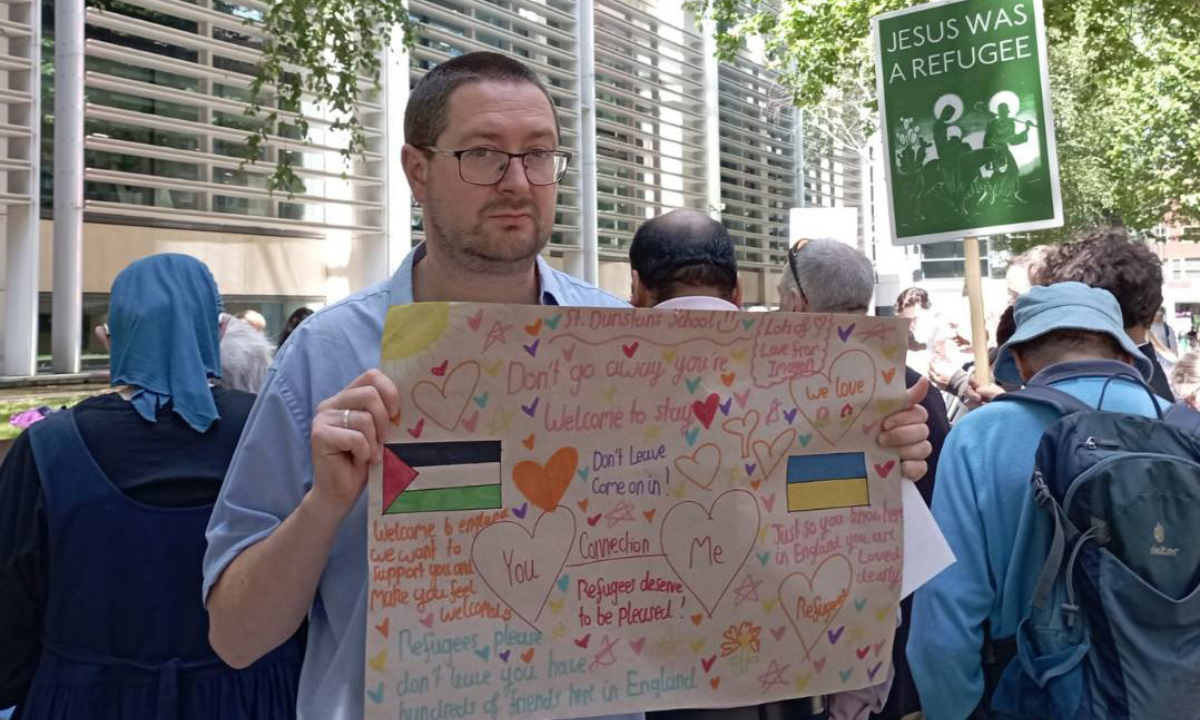 JESUS WAS
A REFUGEE
St. Dunstans School
Lots of
Love from
Don't go away you're
Welcome to stay
we love
Don't Leave
Come on in!
Welcome to england
we want to
support you and
make you feel
welcome
You
Connection
Me
Refugees deserve
to be pleased!
Just so you know here
in England you are
Loved
dearly
Refugees
Refugees, please
don't leave you have
hundreds of friends here in England
deuter